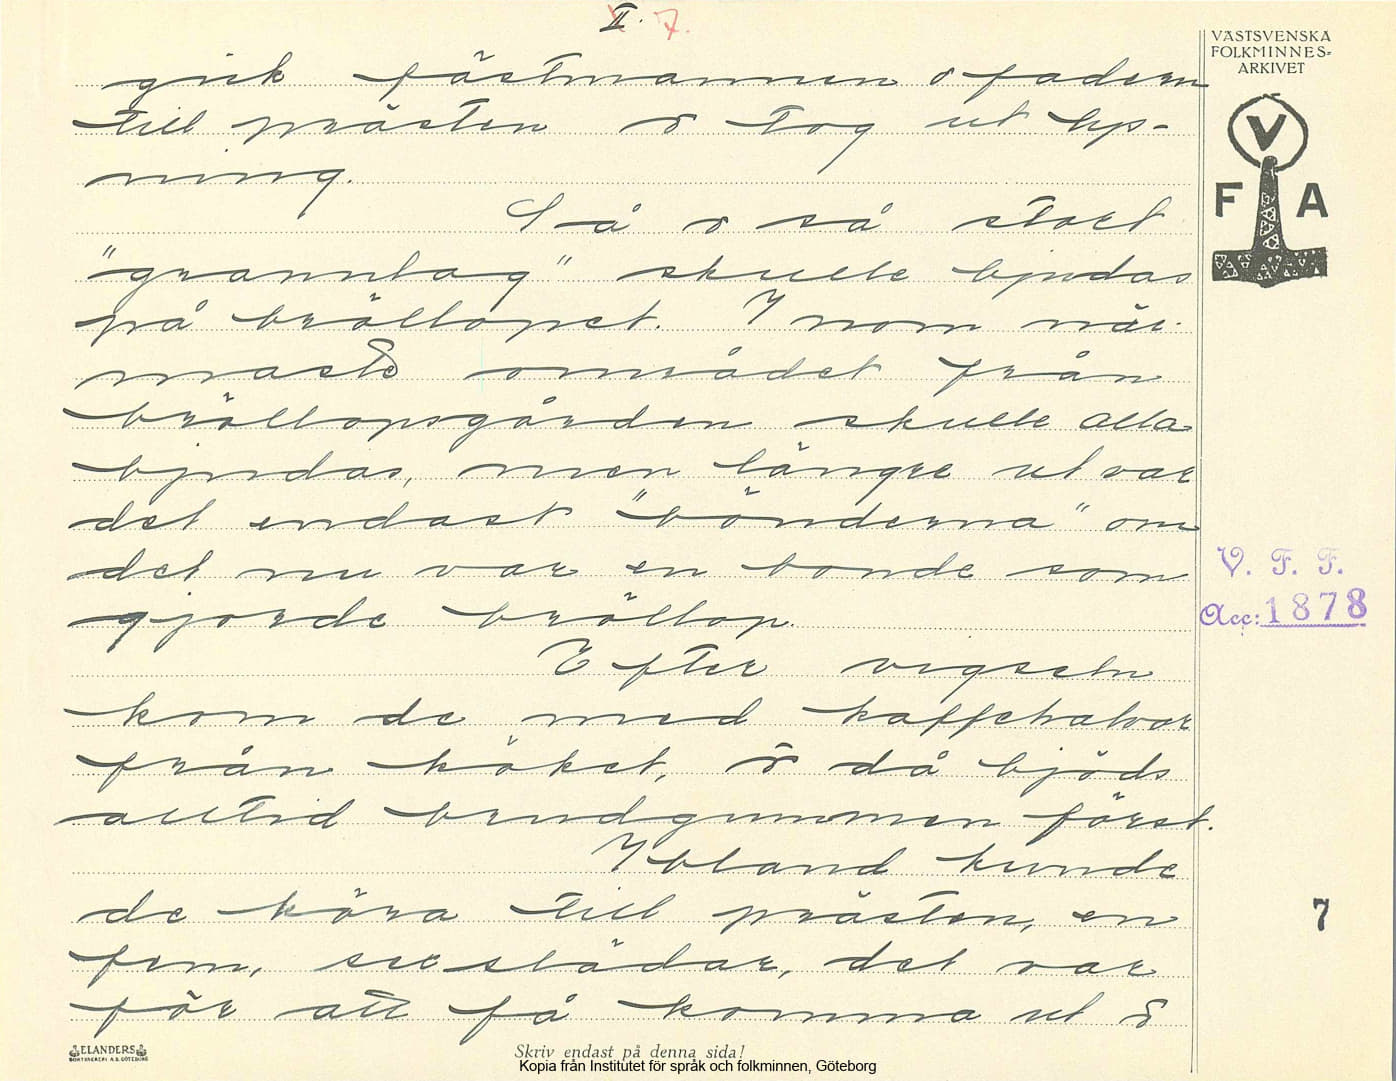 II. 7.
VÄSTSVENSKA
FOLKMINNES-
ARKIVET
V
F A
gick fästmannen o fadern
till prästen o tog ut lys-
ning.
Så o så stort
"grannlag" skulle bjudas
på bröllopet. Inom när-
maste området från
bröllopsgården skulle alla
bjudas, men längre ut var
det endast "bönderna" om
det nu var en bonde som
gjorde bröllop.
Efter vigseln
kom de med kaffehalvor
från köket, o då bjöds
alltid brudgummen först.
Ibland kunde
de köra till prästen, en
fem, sex städar, det var
för att få komma ut o
V. F. F.
Acc: 1878
7
ELANDERS
BOKTRYCKERI A.B. GÖTEBORG
Skriv endast på denna sida!
Kopia från Institutet för språk och folkminnen, Göteborg